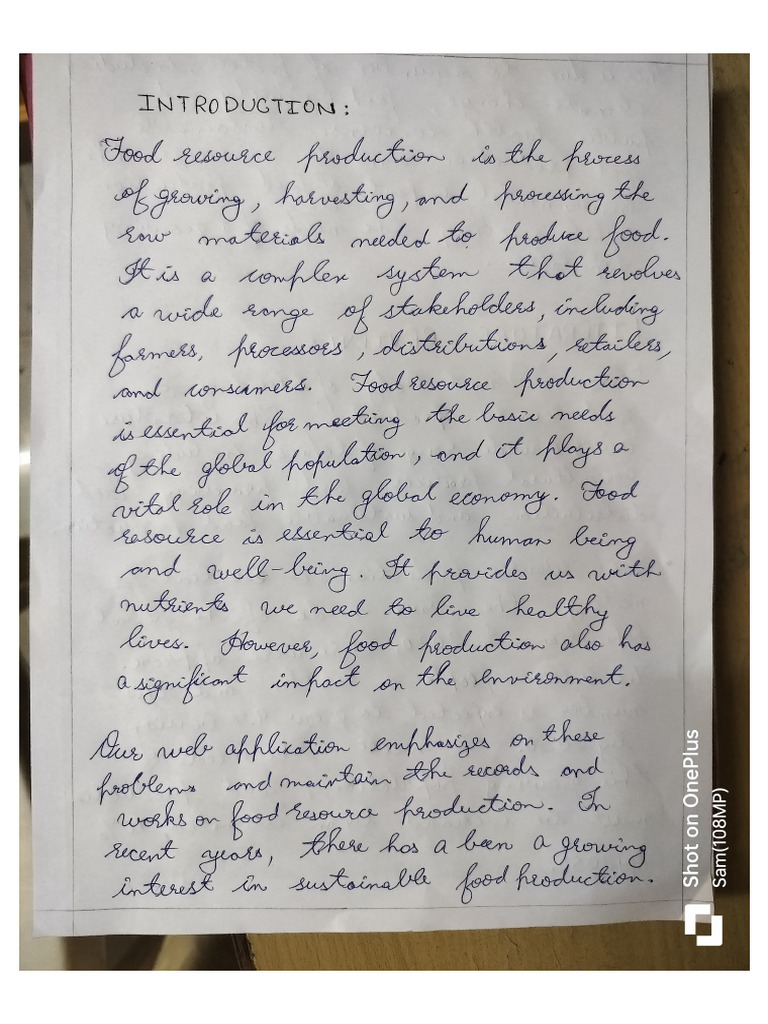 INTRODUCTION:
Food resource production is the process
of growing, harvesting, and processing the
raw materials needed to produce food.
It is a complex system that revolves
a wide range of stakeholders, including
farmers, processors, distributions, retailers,
and consumers. Food resource production
is essential for meeting the basic needs
of the global population, and it plays a
vital role in the global economy. Food
resource is essential to human being
and well-being. It provides us with
nutrients we need to live healthy
lives. However, food production also has
a significant impact on the environment.
Our web application emphasizes on these
problems and maintain the records and
works on food resource production. In
recent years, there has a been a growing
interest in sustainable food production.
Shot on OnePlus
Sam(108MP)